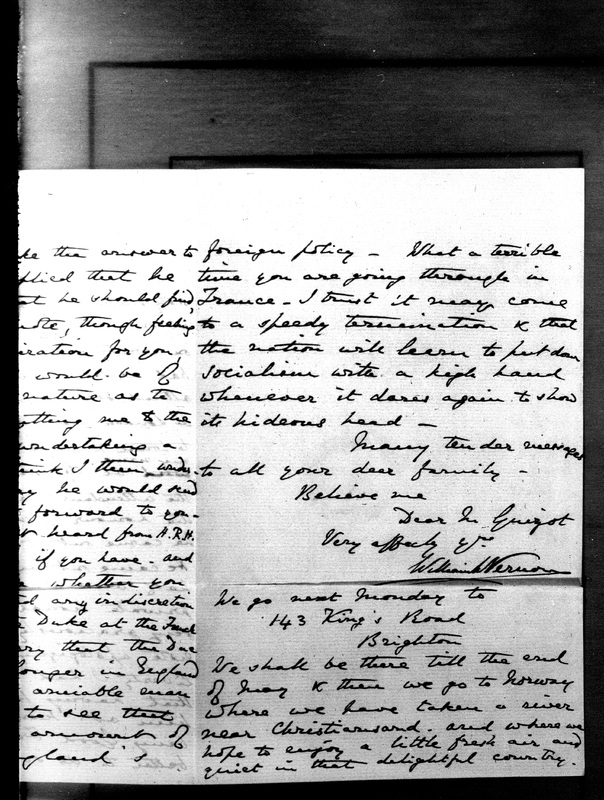 ke the answer to
plied that he
at he should find
note, though feeling
iration for you
would be of
nature as to
tting me to the
undertaking a
think I then
ny he would send
forward to you.
t heard from H.R.H.
if you have and
e whether you
d any indiscretion
Duke at the
ry that the Duc
longer in England
amiable man
to see that
amount of
gland's
foreign policy – What a terrible
time you are going through in
France – I trust it may come
to a speedy termination & that
the nation will learn to put down
socialism with a high hand
whenever it dares again to show
its hideous head –
Many tender messages
to all your dear family –
Believe me
Dear M Guizot
Very affectly yrs
William Vernon
We go next Monday to
143 King's Road
Brighton
We shall be there till the end
of May & then we go to Norway
where we have taken a river
near Christiansand. and where we
hope to enjoy a little fresh air and
quiet in that delightful country.